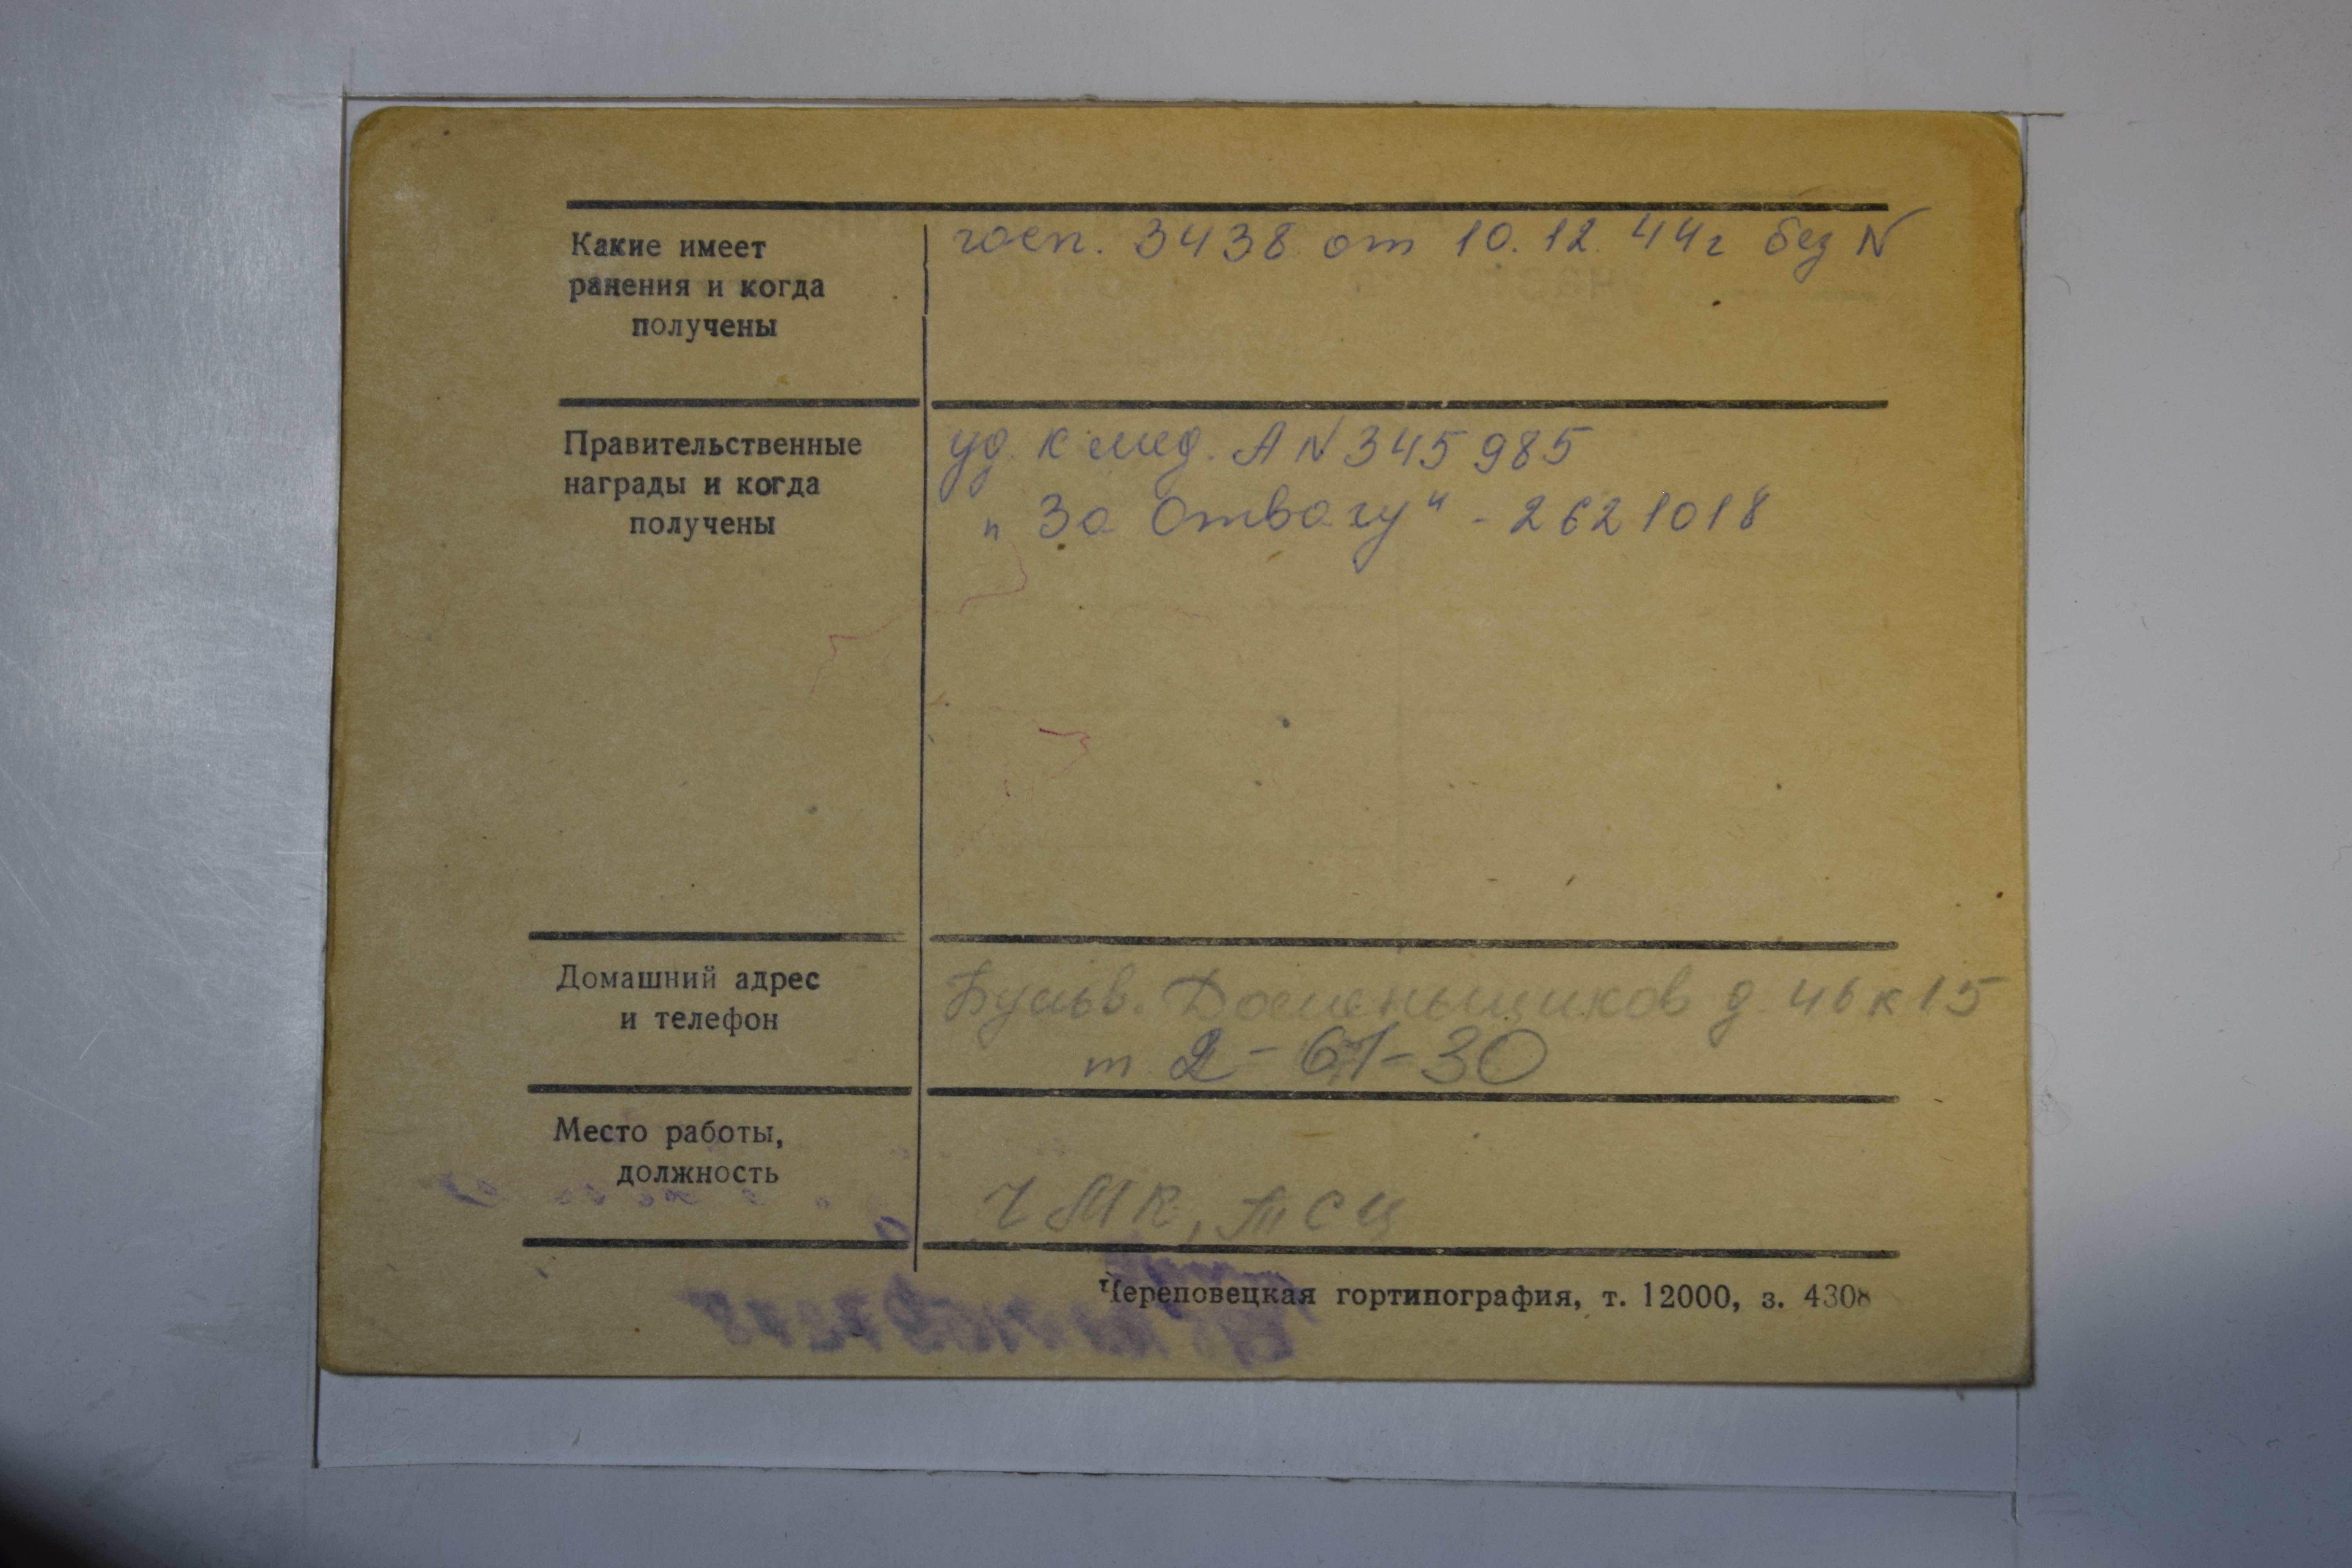 Какие имеет
ранения и когда
получены
госп. 3438 от 10.12.44г без N
Правительственные
награды и когда
получены
уд. к мед. А N 345985
„За Отвагу" - 2621018
Домашний адрес
и телефон
Бульв. Доменьщиков д 46 к 15
т 2-61-30
Место работы,
должность
ЧМК, ТСЦ
Череповецкая гортипография, т. 12000, з. 4308